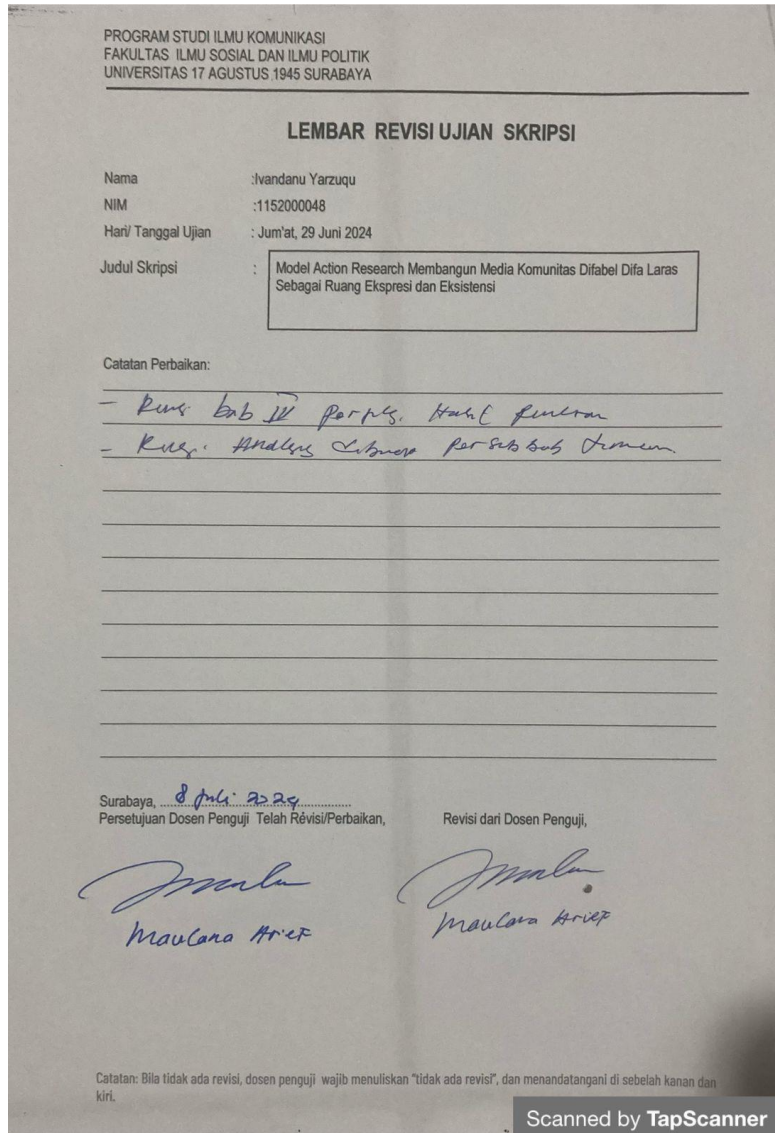 PROGRAM STUDI ILMU KOMUNIKASI
FAKULTAS ILMU SOSIAL DAN ILMU POLITIK
UNIVERSITAS 17 AGUSTUS 1945 SURABAYA
LEMBAR REVISI UJIAN SKRIPSI
Nama :Ivandanu Yarzuqu
NIM :1152000048
Hari/ Tanggal Ujian : Jum'at, 29 Juni 2024
Judul Skripsi : Model Action Research Membangun Media Komunitas Difabel Difa Laras
Sebagai Ruang Ekspresi dan Eksistensi
Catatan Perbaikan:
- bab IV Hasil
- per sub bab
Surabaya, 8 Juli 2024
Persetujuan Dosen Penguji Telah Revisi/Perbaikan, Revisi dari Dosen Penguji,
Maulana Arief Maulana Arief
Catatan: Bila tidak ada revisi, dosen penguji wajib menuliskan "tidak ada revisi", dan menandatangani di sebelah kanan dan
kiri.
Scanned by TapScanner